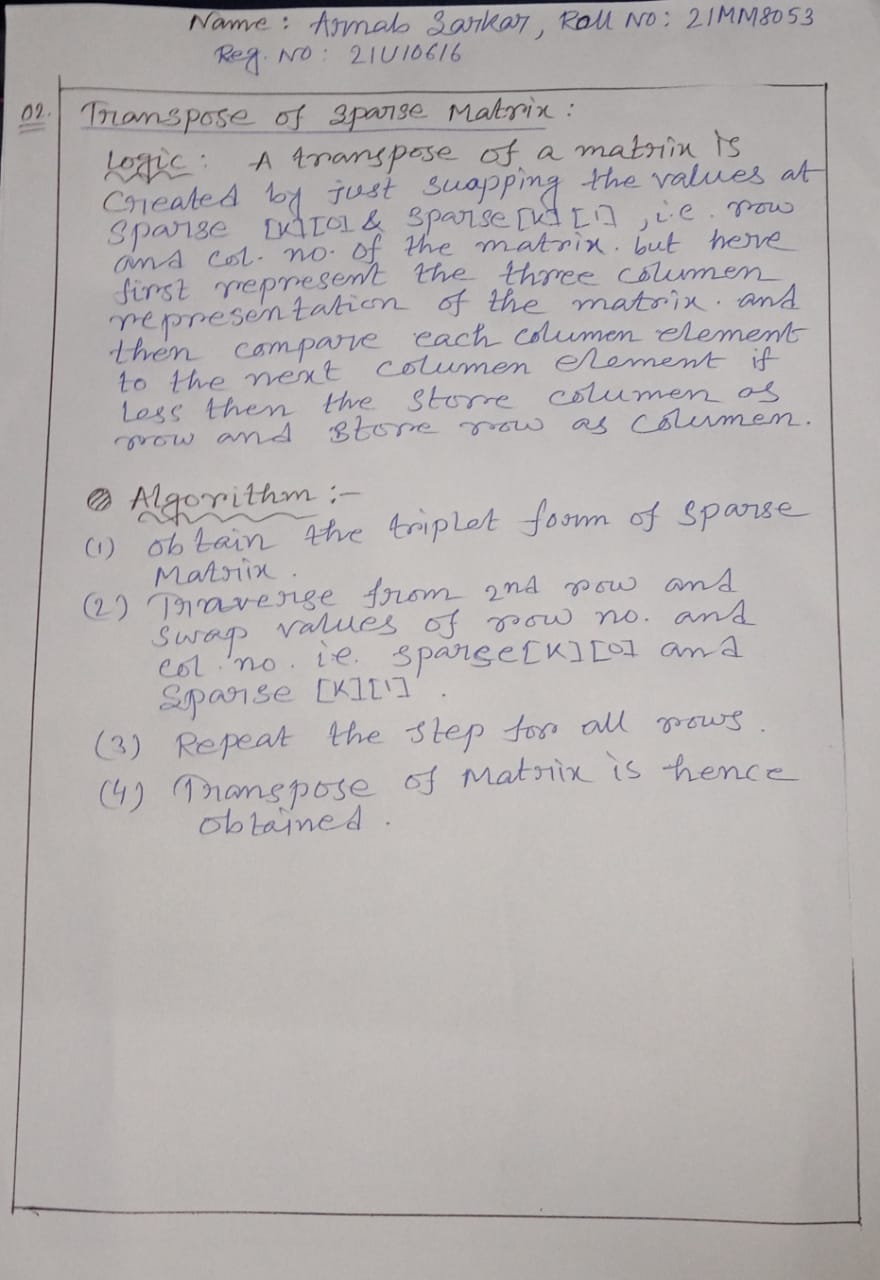 Name : Arnab Sarkar, Roll No: 21MM8053
Reg. No : 21U10616
02. Transpose of Sparse Matrix :
Logic : A transpose of a matrix is
Created by just swapping the values at
Sparse [K][0] & Sparse [K][1] , i.e. row
and col. no. of the matrix. but here
first represent the three columen
representation of the matrix. and
then compare each columen element
to the next columen element if
Less then the store columen as
row and store row as columen.
Algorithm :-
(1) obtain the triplet form of Sparse
Matrix .
(2) Traverse from 2nd row and
Swap values of row no. and
col. no. i.e. sparse[K][0] and
Sparse [K][1] .
(3) Repeat the step for all rows .
(4) Transpose of Matrix is hence
obtained .